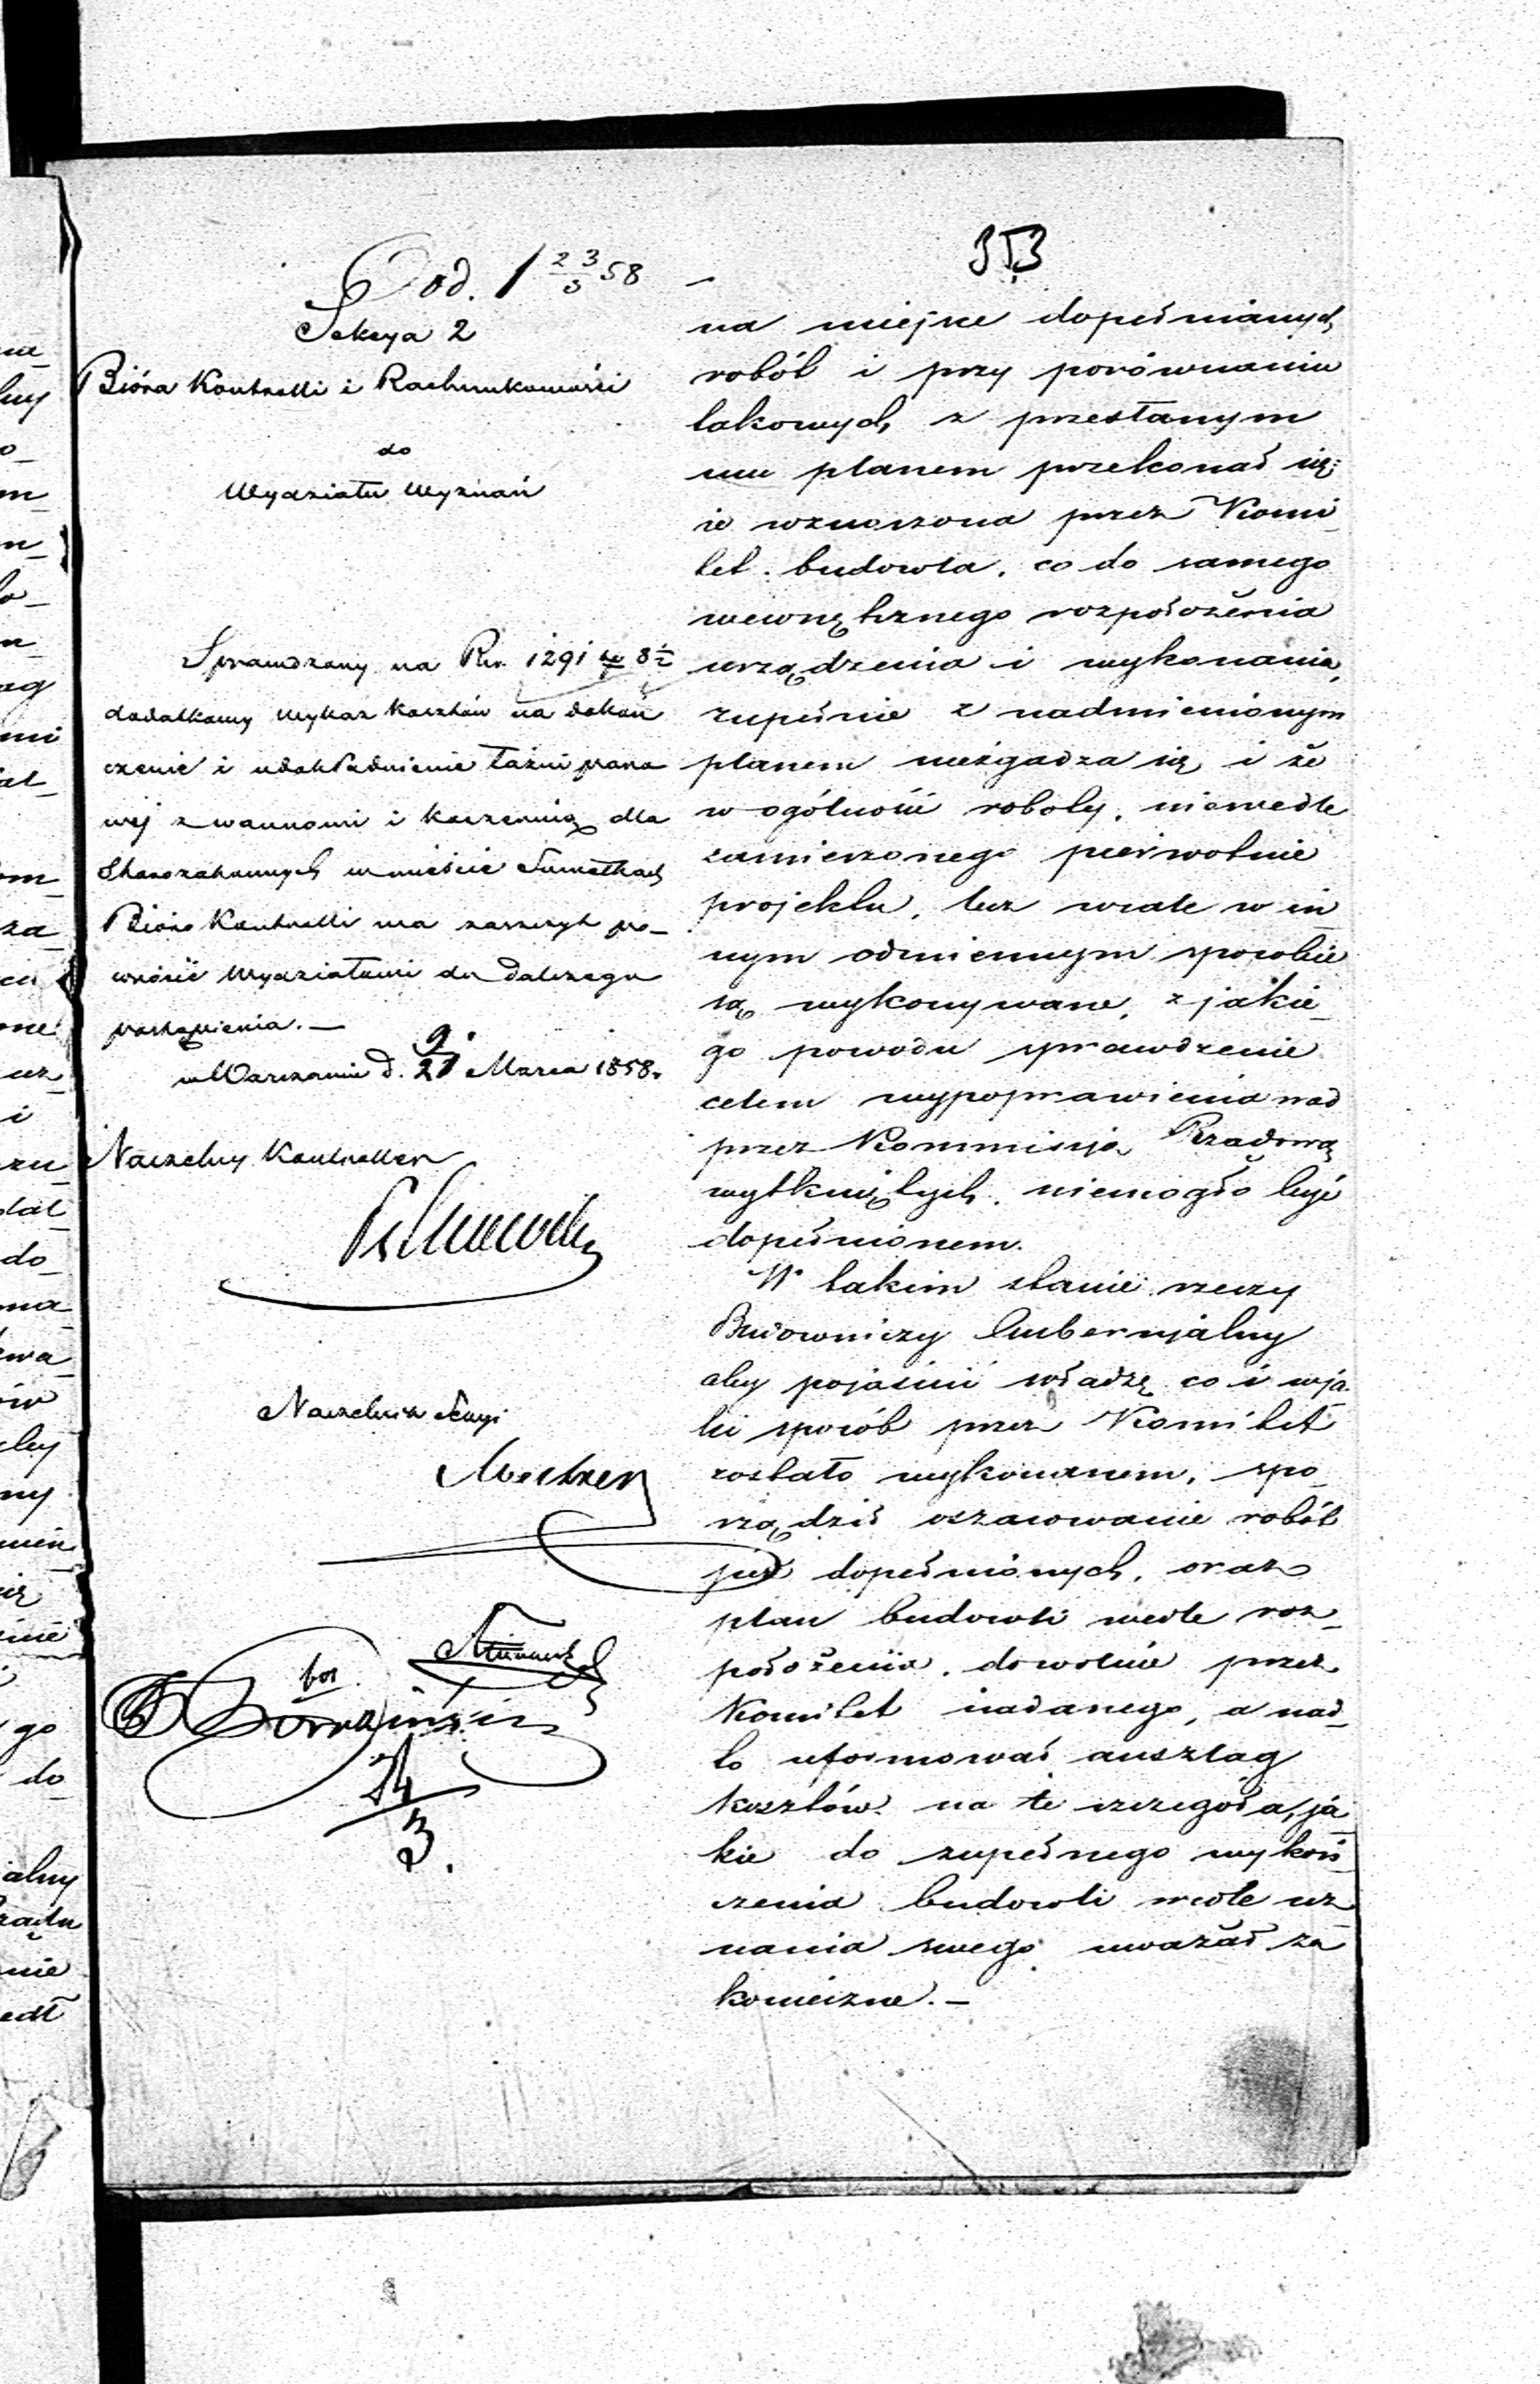 353
Dod. 1 23/3 58
Sekcya 2
Bióra Kontrolli i Rachunkowości
do
Wydziału Wyznań
Sprawdzony na Rw. 1291
dodatkowy wykaz kosztów na dokoń
czenie i udokładnienie łaźni paro
wej z wannami i koszernią dla
Starozakonnych w mieście Suwałkach
Bióro Kontrolli ma zaszczyt po–
wrócić Wydziałowi do dalszego
postąpienia. —
w Warszawie d. 9/21 Marca 1858.
Naczelny Kontroller
Naczelnik Sekcyi
24/3.
na miejsce dopełnianych
robót i przy porównaniu
takowych, z przesłanym
mu planem przekonał się:
że wznoszona przez Komi
tet budowla, co do samego
wewnętrznego rozpołożenia
urządzenia i wykonania,
zupełnie z nadmienionym
planem niezgadza się i że
w ogólności roboty, niewedle
zamierzonego pierwotnie
projektu, lecz wcale w in
nym odmiennym sposobie
są wykonywane, z jakie
go powodu sprawdzenie
celem wypoprawienia wad
przez Kommisyją Rządową
wytkniętych, niemogło być
dopełnionem.
W takim stanie rzeczy
Budowniczy Gubernjalny
aby pojaśnić władzę co i w ja
ki sposób przez Komitet
zostało wykonanem, spo–
rządził oszacowanie robót
już dopełnionych, oraz
plan budowli wedle roz–
położenia, dowolnie przez
Komitet nadanego, a nad–
to uformował anszlag
kosztów na te szczegóła, ja
kie do zupełnego wykoń
czenia budowli wedle uz
nania swego uważał za
konieczne. —